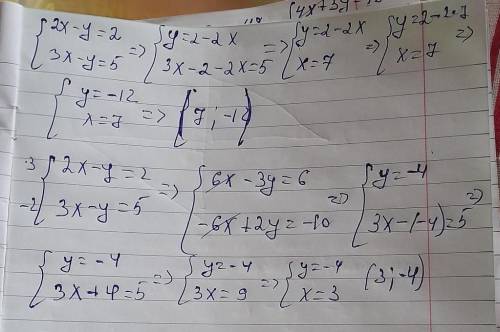 {4x+3y=
{2x-y=2 3x-y=5 => {y=2-2x 3x-2-2x=5 => {y=2-2x x=7 => {y=2-2·7 x=7 =>
{y=-12 x=7 => (7;-12)
·3 -2 {2x-y=2 3x-y=5 => {6x-3y=6 -6x+2y=-10 => {y=-4 3x-(-4)=5 =>
{y=-4 3x+4=5 => {y=-4 3x=9 => {y=-4 x=3 (3;-4)